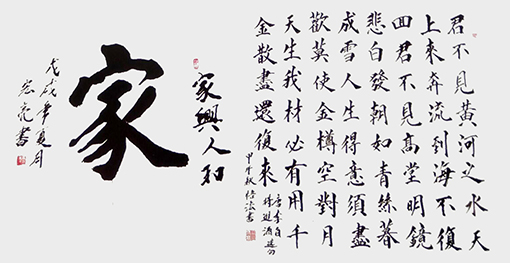 君不見黃河之水天
上來奔流到海不復
回君不見高堂明鏡
悲白發朝如青絲暮
成雪人生得意須盡
歡莫使金樽空對月
天生我材必有用千
金散盡還復來
唐李白
將進酒
甲午秋
書
家興人和
家
戊戌年夏月
宏亮書